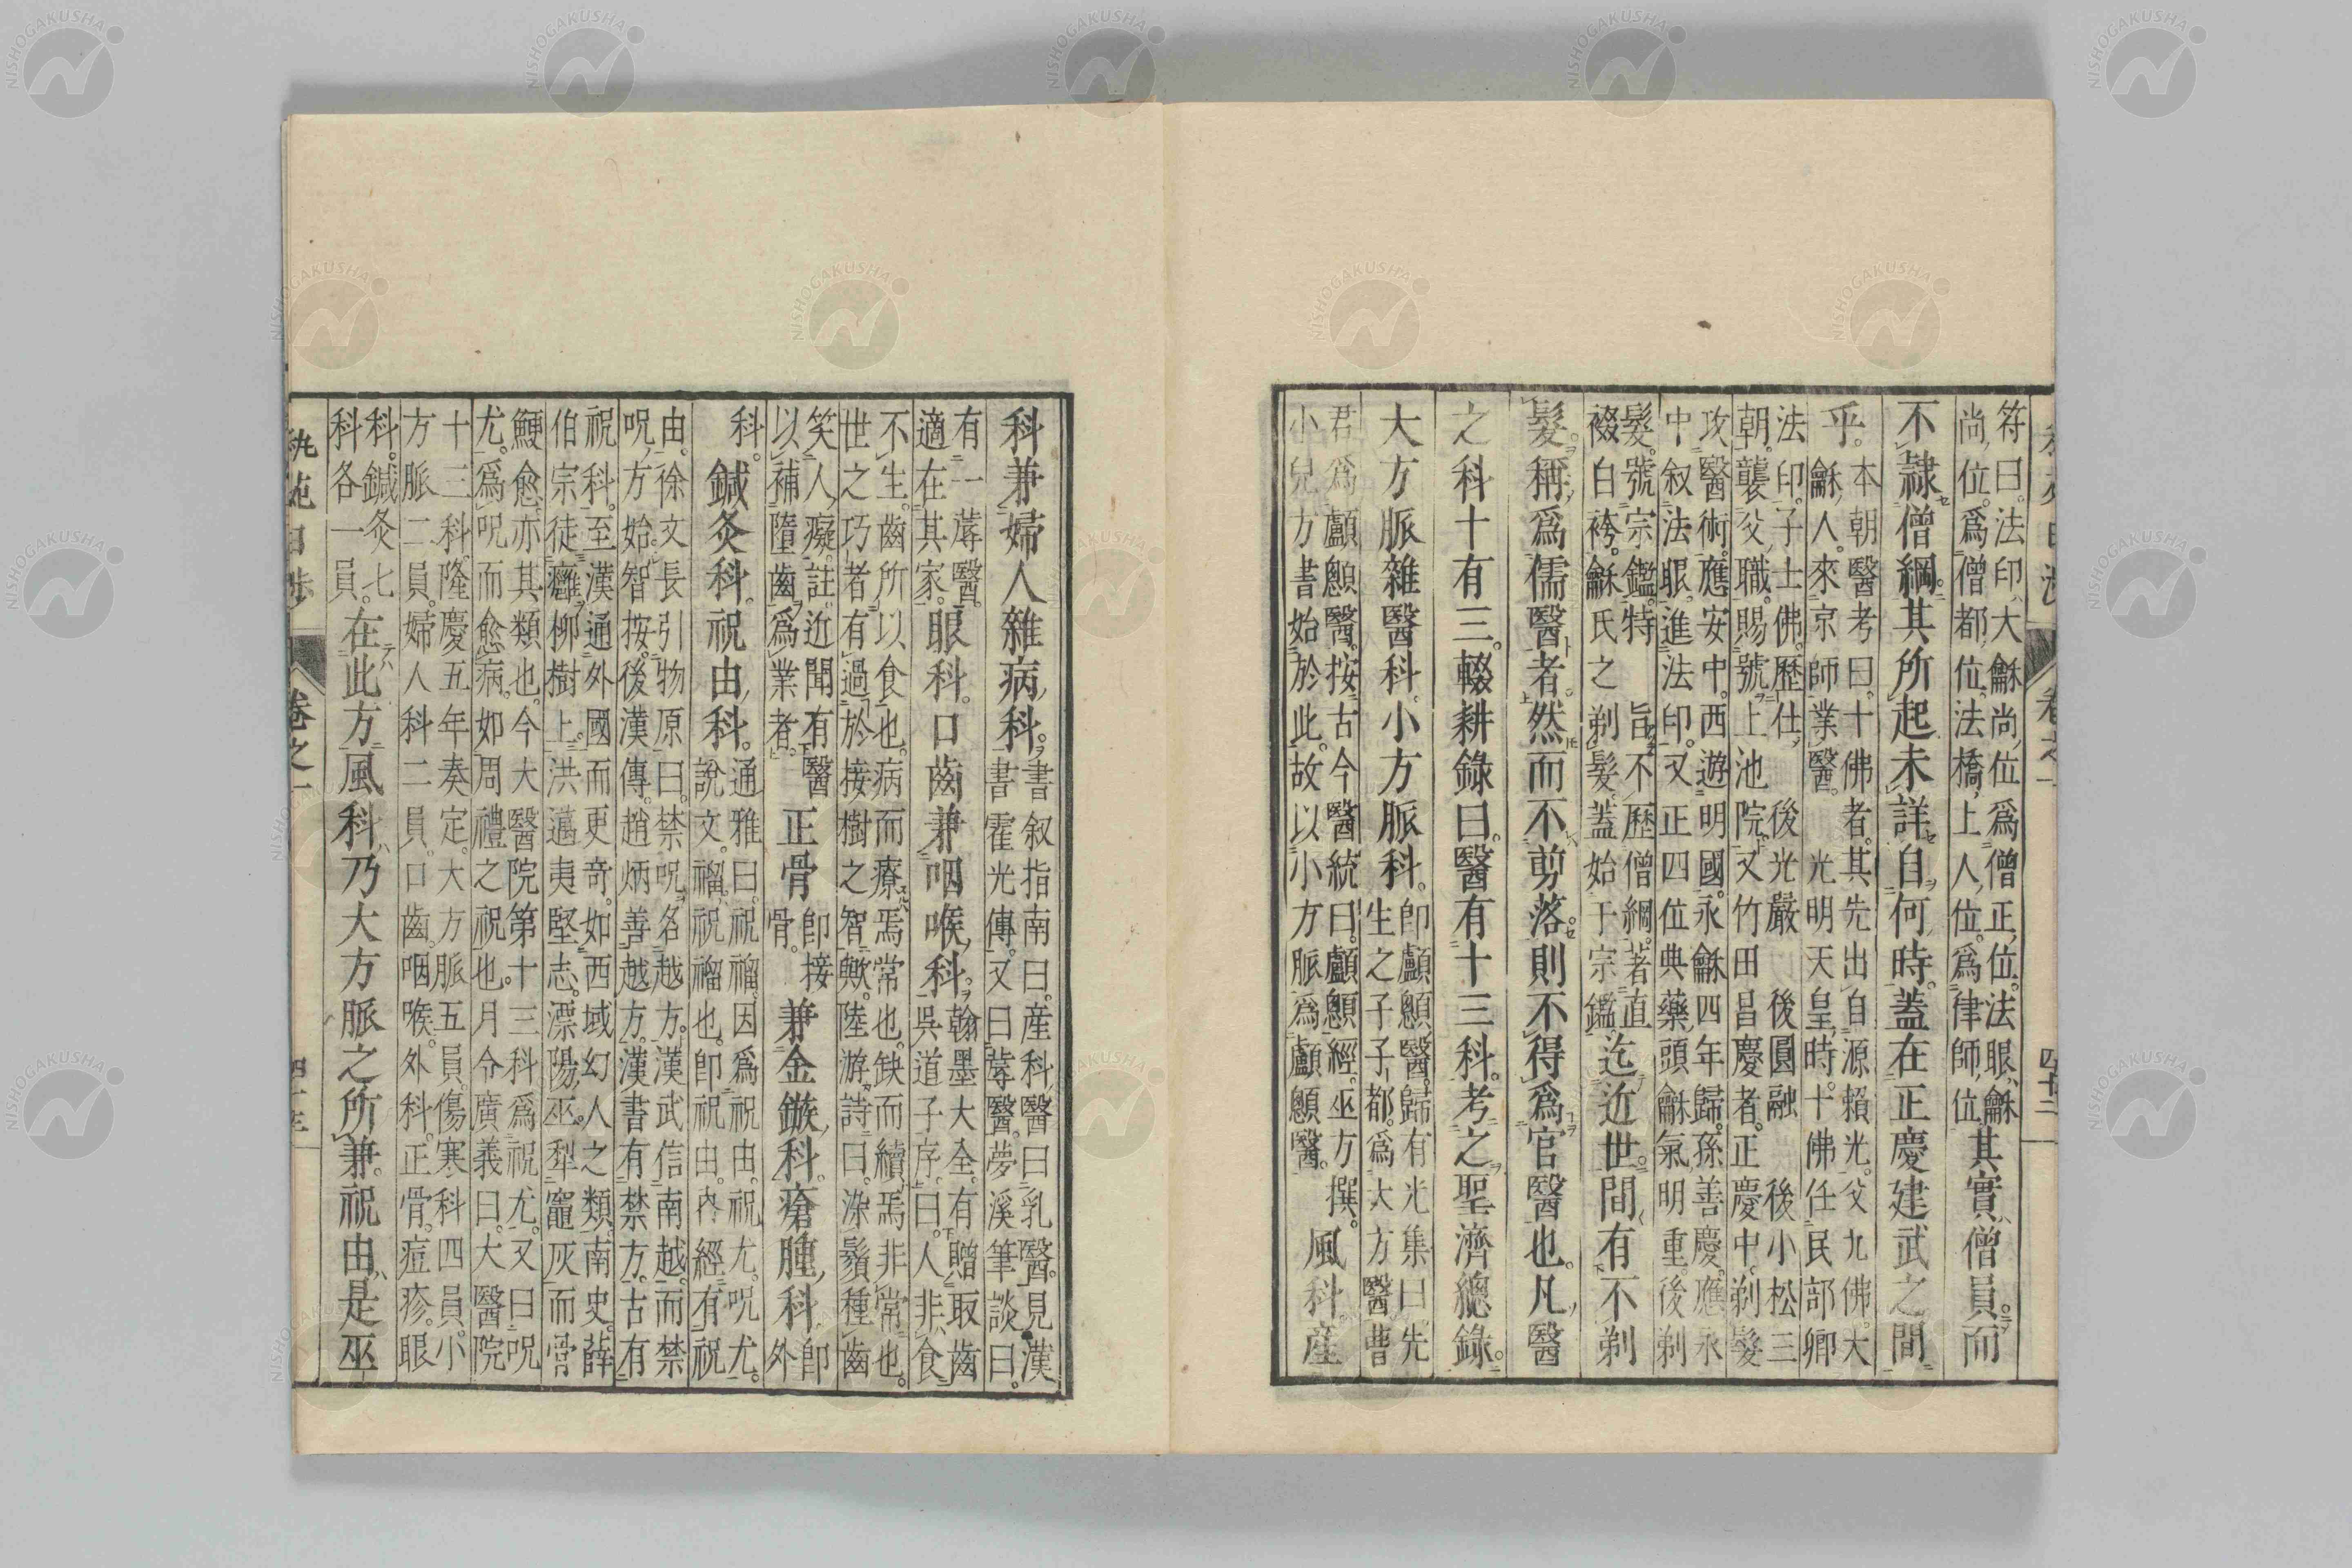 符曰。法印、大龢尚、位爲僧正、位。法眼、龢
尚、位。爲僧都、位。法橋、上人、位。爲律師、位、其實僧員。而
不隷僧綱。其所起未詳自何時。蓋在正慶建武之間
乎。本朝醫考曰。十佛者。其先出自源賴光。父九佛。大
龢人。來京師業醫。光明天皇時。十佛任民部卿
法印。子士佛。歷仕後光嚴後圓融後小松三
朝。襲父職。賜號上池院。又竹田昌慶者。正慶中。剃髮
攻醫術。應安中。西遊明國。永龢四年歸。孫善慶。應永
中叙法眼。進法印。又正四位典藥頭龢氣明重。後剃
髮。號宗鑑。特旨不歷僧綱。著直
裰白袴。龢氏之剃髮。蓋始于宗鑑。迄近世。間有不剃
髮。稱爲儒醫者。然而不剪落。則不得爲官醫也。凡醫
之科十有三。輟耕錄曰。醫有十三科。考之聖濟總錄。
大方脈雜醫科。小方脈科。卽顱顖醫。歸有光集曰。先
生之子子都。爲大方醫曹
君爲顱顖醫。按古今醫統曰。顱顖經。巫方撰。
小兒方書始於此。故以小方脈爲顱顖醫。風科。産
科兼婦人雜病科。書叙指南曰。産科醫曰乳醫。見漢
書霍光傳。又曰蓐醫。夢溪筆談曰。
有一蓐醫。
適在其家。眼科。口齒兼咽喉科。翰墨大全。有贈取齒
吳道子序。曰。人非食
不生。齒所以食也。病而療焉常也。缺而續焉非常也。
世之巧者。有過於接樹之智歟。陸游詩曰。染鬚種齒
笑人癡。註。近聞有醫
以補墮齒爲業者。正骨卽接
骨。兼金鏃科。瘡腫科卽
外
科。鍼灸科。祝由科。通雅曰。祝䄂。因爲祝由。祝尤。呪尤。
說文。䄂。祝䄂也。卽祝由。內經有祝
由。徐文長引物原曰。禁呪名越方。漢武信南越。而禁
呪方始。智按。後漢傳。趙炳善越方。漢書有禁方。古有
祝科。至漢通外國而更奇。如西域幻人之類。南史。薛
伯宗徒癰柳樹上。洪邁夷堅志。漂陽巫。犁竈灰而骨
鯁愈。亦其類也。今大醫院第十三科爲祝尤。又曰呪
尤。爲呪而愈病。如周禮之祝也。月令廣義曰。大醫院
十三科。隆慶五年奏定。大方脈五員。傷寒科四員。小
方脈二員。婦人科二員。口齒。咽喉。外科。正骨。痘疹。眼
科。鍼灸七
科各一員。在此方。風科乃大方脈之所兼。祝由是巫
卷之一